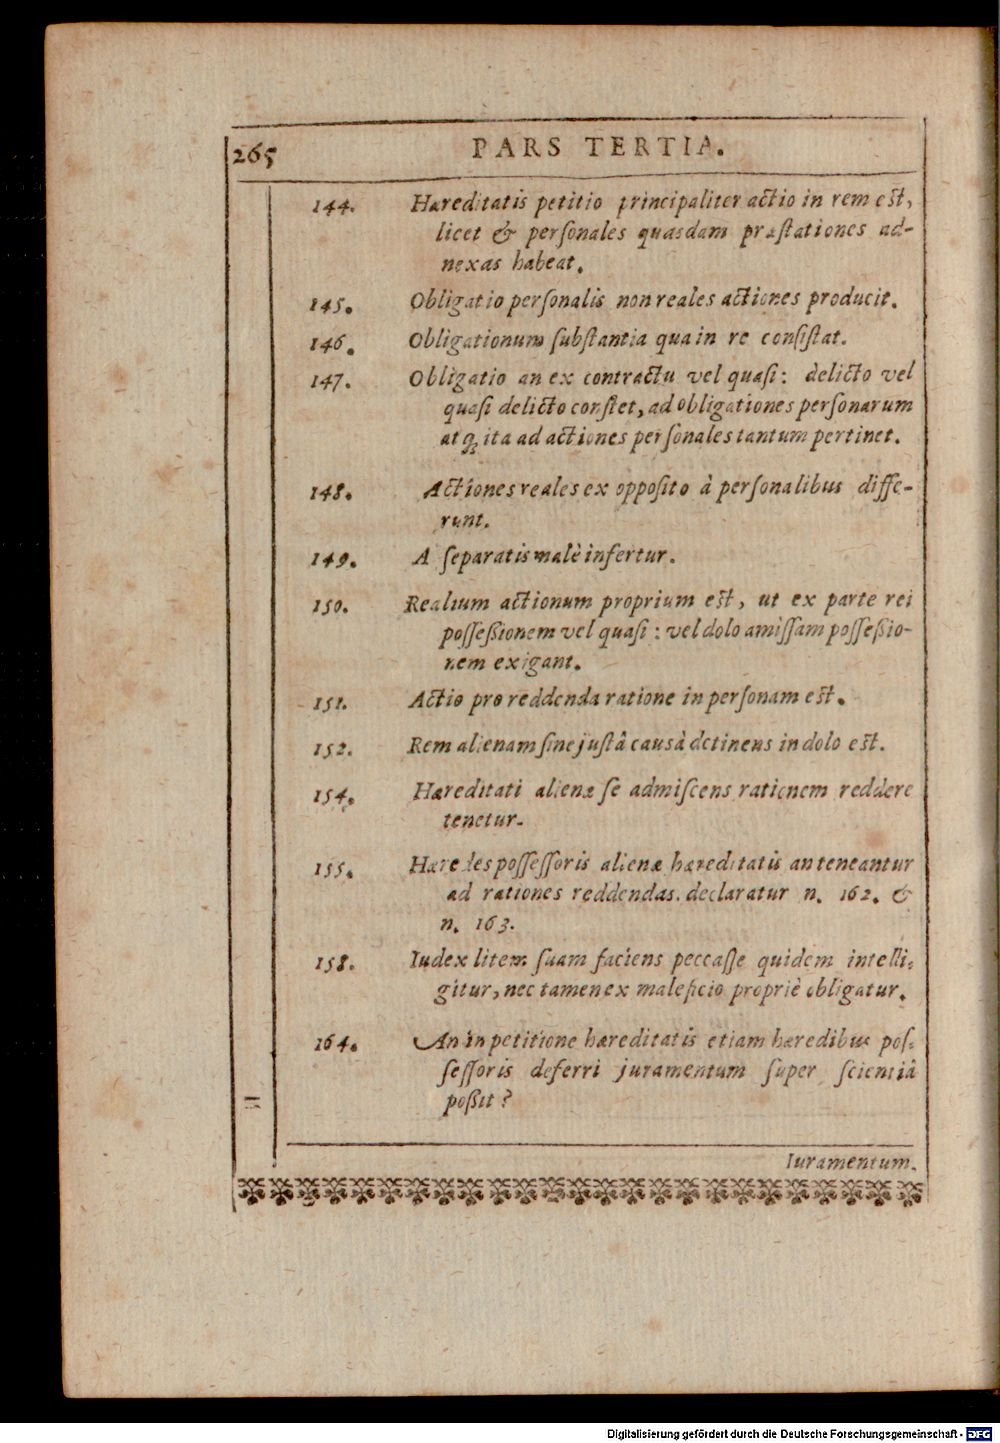 265 PARS TERTIA.
144. Hæreditatis petitio principaliter actio in rem est,
licet & perſonales quasdam præſtationes ad-
nexas habeat.
145. Obligatio perſonalis non reales actiones producit.
146. Obligationum ſubſtantia qua in re conſiſtat.
147. Obligatio an ex contractu vel quaſi: delicto vel
quaſi delicto conſtet, ad obligationes perſonarum
atq; ita ad actiones perſonales tantum pertinet.
148. Actiones reales ex oppoſito à perſonalibus diffe-
runt.
149. A ſeparatis malè infertur.
150. Realium actionum proprium est, ut ex parte rei
poſſeßionem vel quaſi: vel dolo amiſſam poſſeßio-
nem exigant.
151. Actio pro reddenda ratione in perſonam est.
152. Rem alienam ſine juſtâ causâ detinens in dolo est.
154. Hæreditati alienæ ſe admiſcens rationem reddere
tenetur.
155. Hæredes poſſeſſoris alienæ hæreditatis an teneantur
ad rationes reddendas. declaratur n. 162. &
n. 163.
158. Iudex litem ſuam faciens peccaſſe quidem intelli-
gitur, nec tamen ex maleficio propriè obligatur.
164. An in petitione hæreditatis etiam hæredibus poſ-
ſeſſoris deferri juramentum ſuper ſcientiâ
poßit?
Iuramentum.
Digitalisierung gefördert durch die Deutsche Forschungsgemeinschaft - DFG